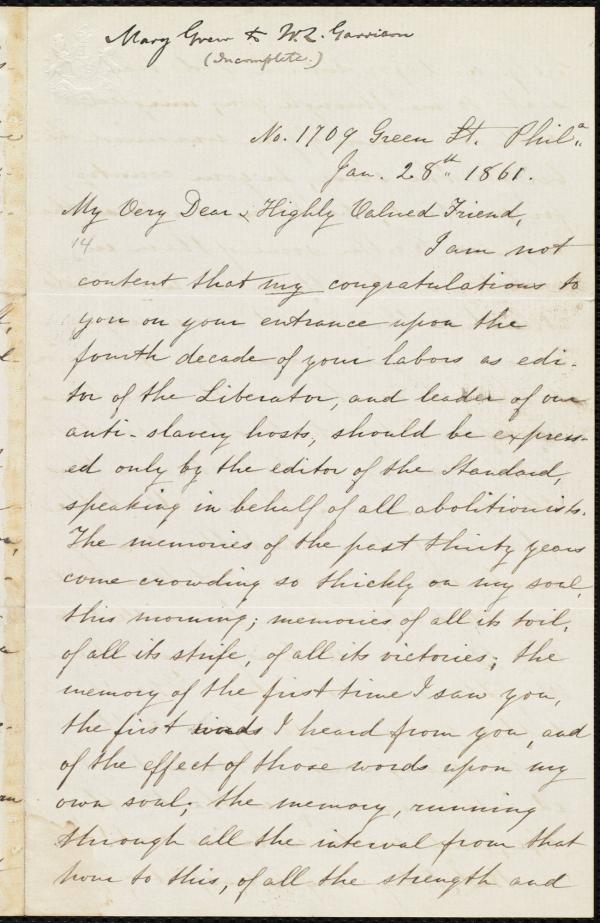 Mary Grew to W. L. Garrison
(Incomplete.)
No. 1709 Green St. Phila.
Jan. 28th 1861.
My Very Dear & Highly Valued Friend,
14
I am not
content that my congratulations to
you on your entrance upon the
fourth decade of your labors as edi-
tor of the Liberator, and leader of our
anti-slavery hosts, should be express-
ed only by the editor of the Standard,
speaking in behalf of all abolitionists.
The memories of the past thirty years
come crowding so thickly on my soul,
this morning; memories of all its toil,
of all its strife, of all its victories; the
memory of the first time I saw you,
the first words I heard from you, and
of the effect of those words upon my
own soul; the memory, running
through all the interval from that
hour to this, of all the strength and